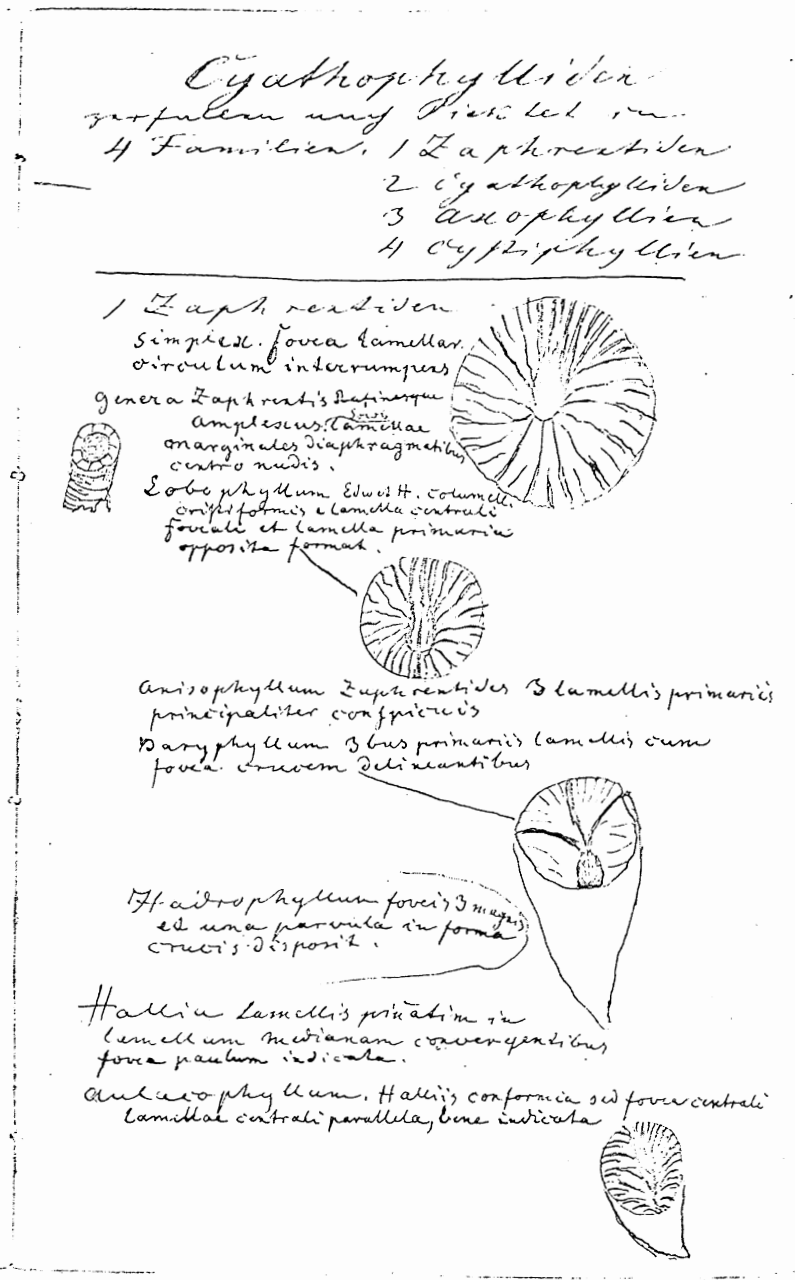 Cyathophylliden
zerfallen nach Pictet in
4 Familien. 1 Zaphrentiden
2 Cyathophylliden
3 Axophyllien
4 Cystiphyllien
1 Zaphrentiden
Simplex. fovea lamellar.
circulum interrumpens
genera Zaphrentis Rafinesque
Amplexus. lamellae
marginales diaphragmatibus
centro nudis.
Lobophyllum Edw et H. columella
cristiformis e lamella centrali
foveali et lamella primaria
opposita format.
Anisophyllum Zaphrentides 3 lamellis primariis
principaliter conspicuis
Baryphyllum 3bus primariis lamellis cum
fovea crucem delineantibus
Hadrophyllum foveis 3 magnis
et una parvula in forma
crucis disposit.
Hallia Lamellis pinnatim in
lamellam medianam convergentibus
fovea paulum indicata.
Aulacophyllum. Halliis conformia sed fovea centrali
lamellae centrali parallela, bene indicata